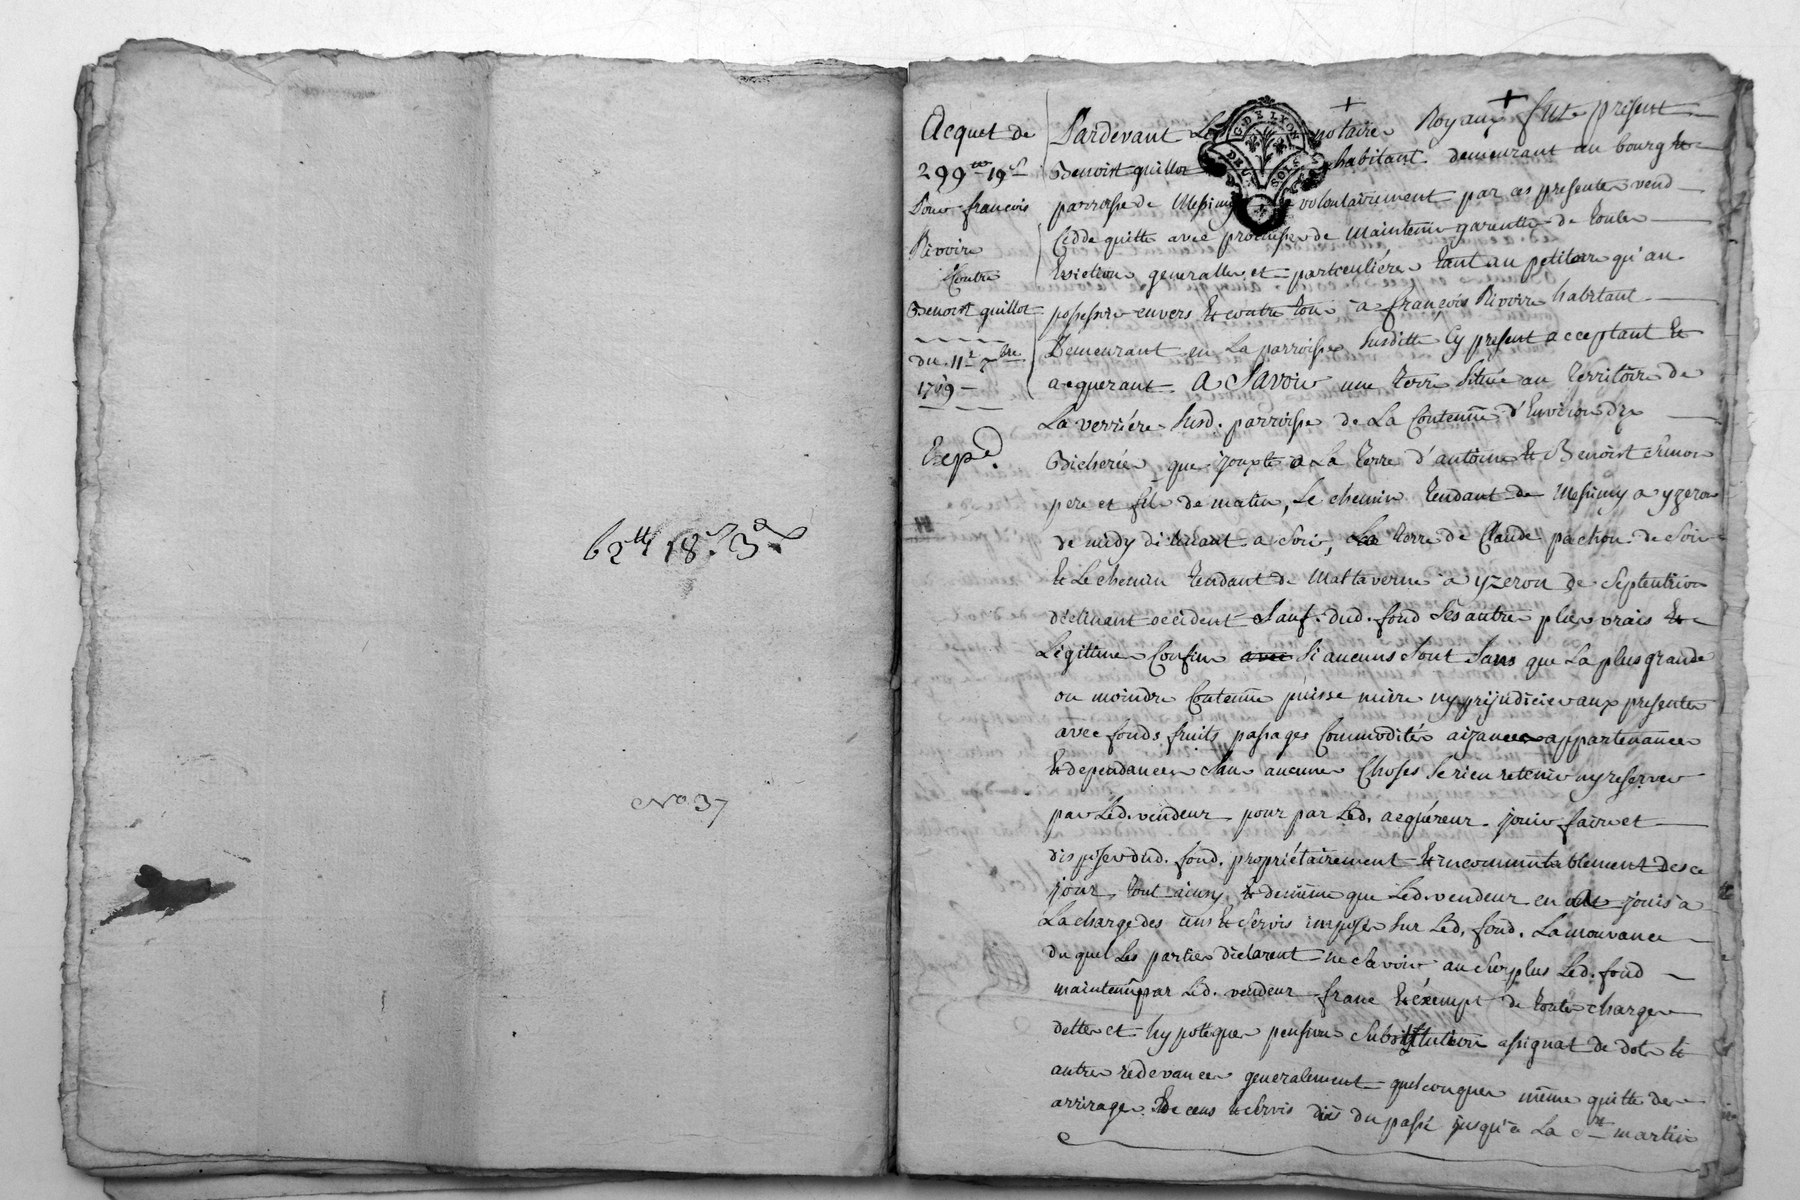 62ᵗᵗ 18ˢ 3ᵈ
No 37
Acquet de
299ᵗᵗ 19ˢ
Pour françois
Rivoire
Contre
Benoist guillot
du 11ᵉ 7ᵇʳᵉ
Expᵉ.
G. DE LYON
DEUX SOLS
Pardevant Les notaires Royaux fut présent
Benoist guillot habitant demeurant au bourg et
parroisse de Messimy volontairement par ces presentes vend
Cedde quitte avec promesse de maintenir garentir de toutes
Eviction generalle et particuliére tant au petitoire qu'au
possessoire envers Et contre tous à françois Rivoire habitant
Demeurant en La parroisse susditte Cy present acceptant Et
acquerant A Savoir une terre Située au territoire de
La verriére susd. parroisse de La Contenüe d'Environ dix
Bicherées que jouxte La terre d'antoine Et Benoist
pere et fils de matin, Le chemin tendant de Messimy a yzeron
de midy déclinant a soir, La terre de Claude pachon de soir
Et Le chemin tendant de Mallaverne à yzeron de septentrion
déclinant occident Sauf dud. fond Ses autres plus vrais Et
Légitimes Confins Si aucuns Sont Sans que La plus grande
ou moindre Contenüe puisse nuire ny préjudicier aux presentes
avec fonds fruits passages Commodités aizances appartenances
Et dependances Sans aucunes Choses Se rien retenir ny reserver
par Led. vendeur pour par Led. acquéreur jouir faire et
disposer dud. fond. propriétairement Et incommutablement des ce
jour, tout ainsy Et de même que Led. vendeur en jouis à
La charge des cens Et Servis imposés sur Led. fond. La mouvance
du quel Les parties déclarent ne Savoir au surplus Led. fond
maintenu par Led. vendeur franc Et éxempt de toutes charges
dettes et hypoteques pensions Substitution assignat de dots Et
autres redevances generalement quelconques même quitte des
arrirages De cens Et Servis dus du passé jusqu'à La Sᵗ martin